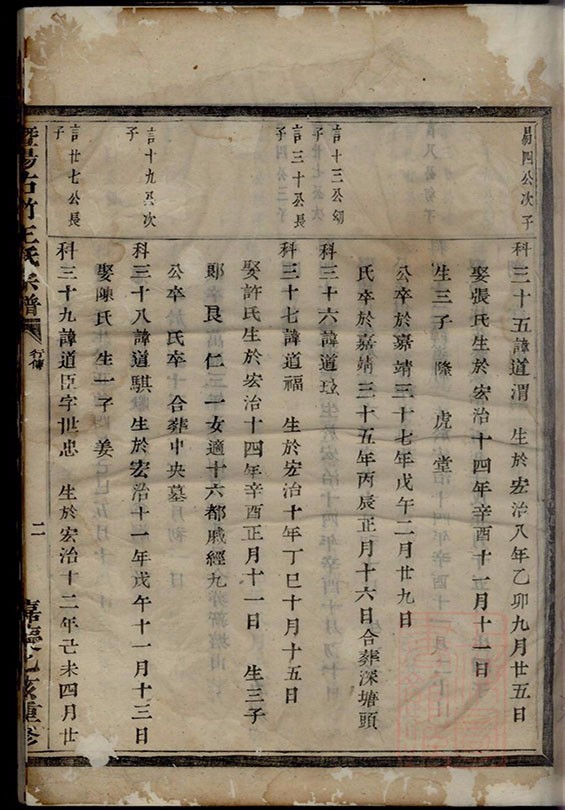 易四公次子
科三十五諱道渭 生於宏治八年乙卯九月廿五日
娶張氏生於宏治十四年辛酉十一月十一日
生三子 隆 虎 堂
公卒於嘉靖三十七年戊午二月廿九日
氏卒於嘉靖三十五年丙辰正月十六日合葬深塘頭
言十三公幼子
科三十六諱道
言三十公長子
科三十七諱道福 生於宏治十年丁巳十月十五日
娶許氏生於宏治十四年辛酉正月十一日 生三子
鄭 艮 仁 一女適十六都戚經九
公卒於 氏卒 合葬中央墓
言十九公次子
科三十八諱道騏 生於宏治十一年戊午十一月十三日
娶陳氏 生一子 姜
言廿七公長子
科三十九諱道臣字世忠 生於宏治十二年己未四月廿
暨陽古竹王氏宗譜
行傳
二
嘉慶乙亥重修